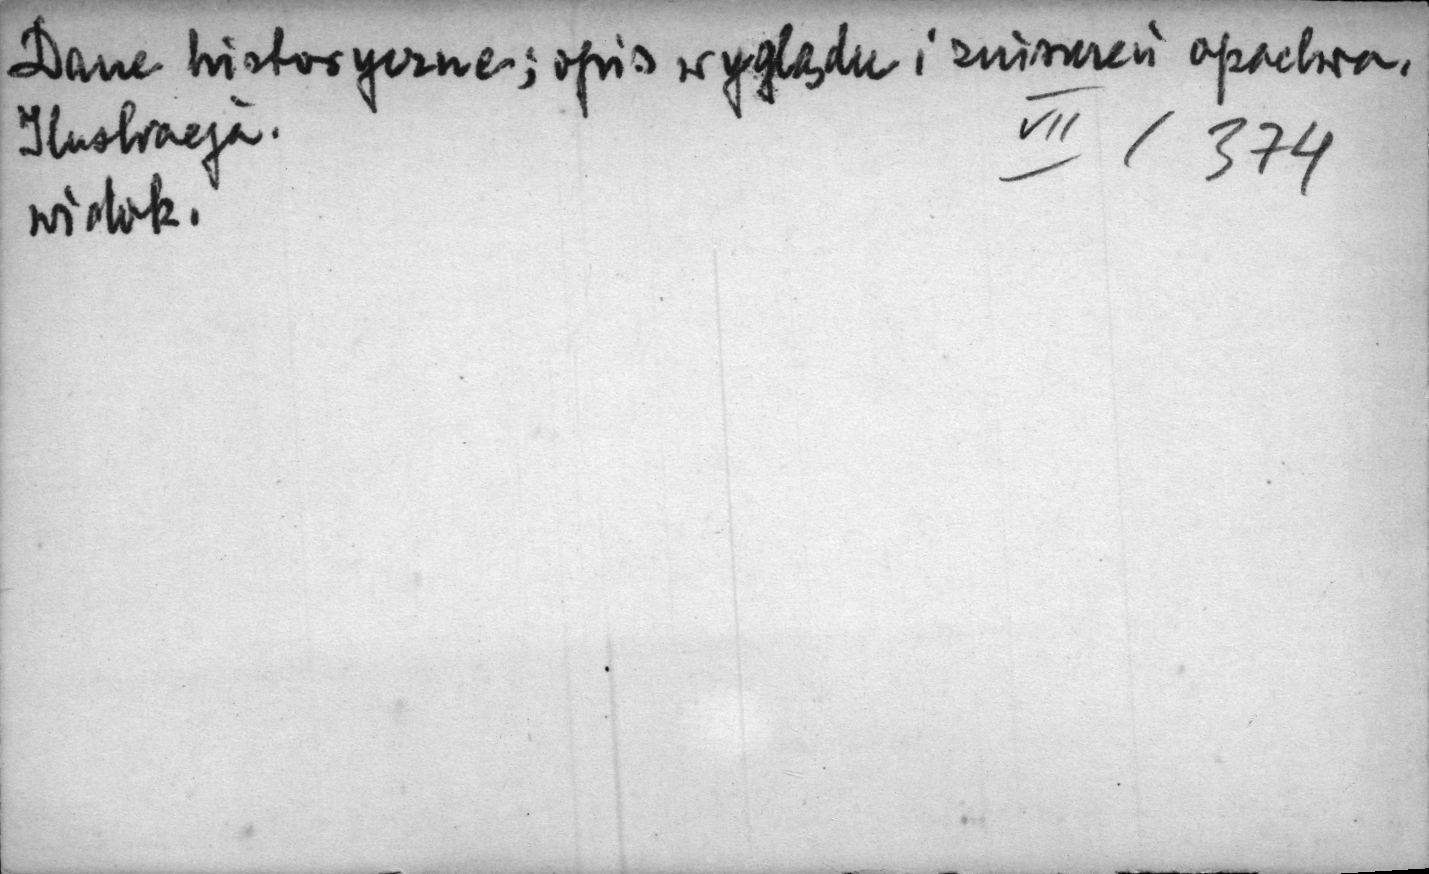 Dane historyczne; opis wyglądu i zniszczeń opactwa.
Ilustracja. VII / 374
widok.